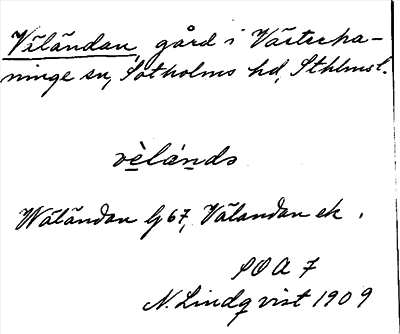 Väländan, gård i Västerha-
ninge sn, Sotholms hd, Sthlmsl.
vèlánds
Wäländan Lg 67, Välandan ek.
SOA 7
N. Lindqvist 1909